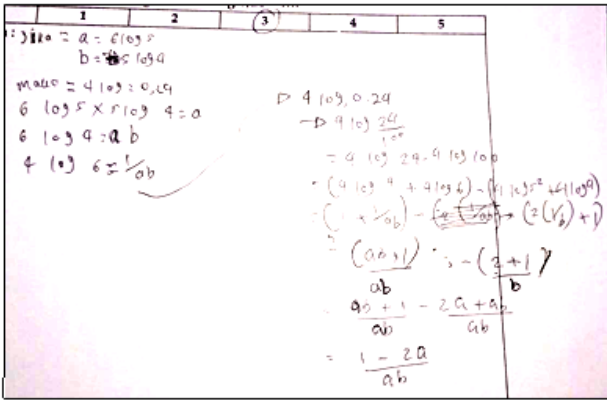 1 2 3 4 5
: Jika = a = 6log5
b = 5 log 4
maka = 4 log : 0,24
6 log 5 x 5 log 4 = a
6 log 4 = a b
4 log 6 = 1/ab
▷ 4 log, 0.24
-▷ 4 log 24/100
= 4 log 24 - 4 log 100
= (4 log 4 + 4 log 6) - (4 log 5² + 4 log 4)
= (1 + 1/ab) - (2(1/b) + 1)
= (ab+1)/ab - (2+1)/b
ab + 1/ab - 2a + ab/ab
= 1 - 2a/ab